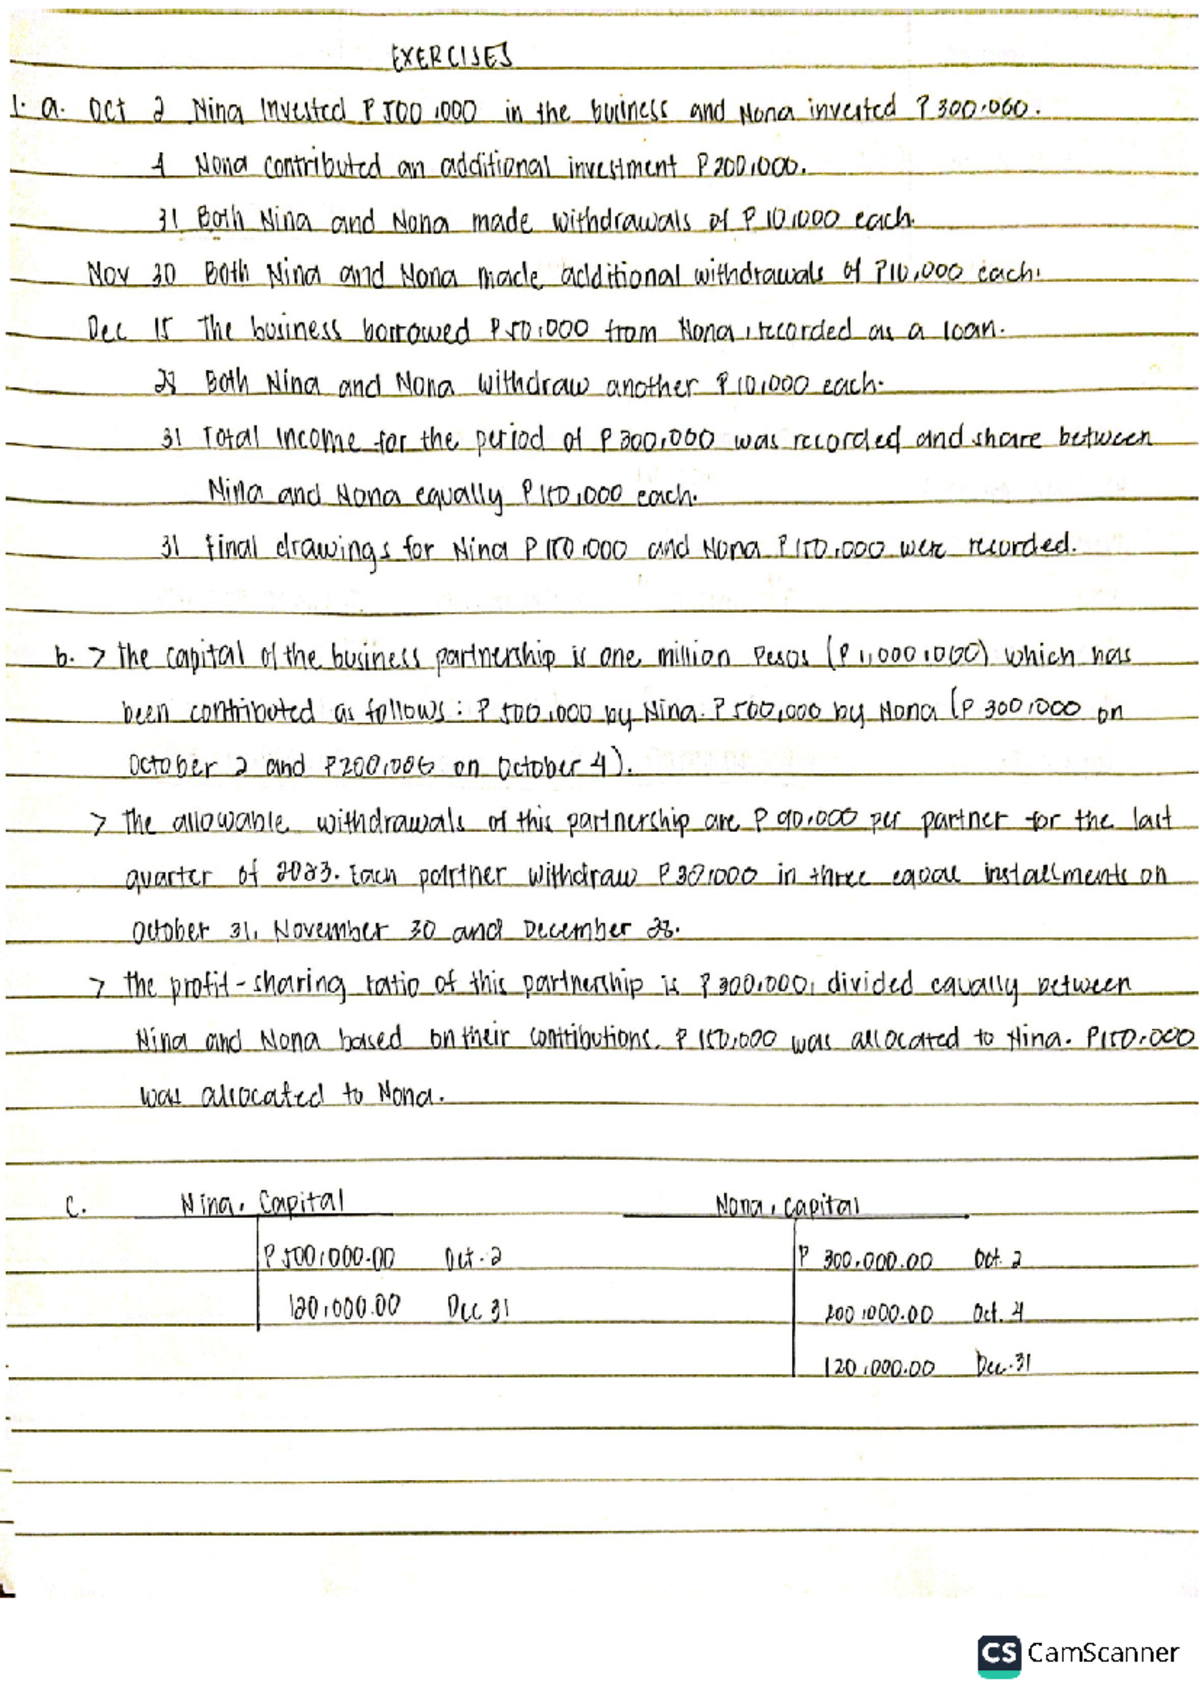 EXERCISES
1. a. Oct 2 Nina Invested ₱500,000 in the business and Nona invested ₱300.000.
4 Nona contributed an additional investment ₱200,000.
31 Both Nina and Nona made withdrawals of ₱10,000 each.
Nov 30 Both Nina and Nona made additional withdrawals of ₱10,000 each.
Dec 15 The business borrowed ₱50,000 from Nona, recorded as a loan.
28 Both Nina and Nona withdraw another ₱10,000 each.
31 Total Income for the period of ₱300,000 was recorded and share between
Nina and Nona equally ₱150,000 each.
31 Final drawings for Nina ₱150,000 and Nona ₱150,000 were recorded.
b. > The capital of the business partnership is one million Pesos (₱1,000,000) which has
been contributed as follows: ₱500,000 by Nina. ₱500,000 by Nona (₱300,000 on
October 2 and ₱200,000 on October 4).
> The allowable withdrawals of this partnership are ₱90,000 per partner for the last
quarter of 2023. Each partner withdraw ₱30,000 in three equal installments on
October 31, November 30 and December 28.
> The profit-sharing ratio of this partnership is ₱300,000, divided equally between
Nina and Nona based on their contributions. ₱150,000 was allocated to Nina. ₱150,000
was allocated to Nona.
c. Nina, Capital Nona, Capital
₱500,000.00 Oct. 2 ₱ 300,000.00 Oct. 2
120,000.00 Dec 31 200,000.00 Oct. 4
120,000.00 Dec. 31
CS CamScanner